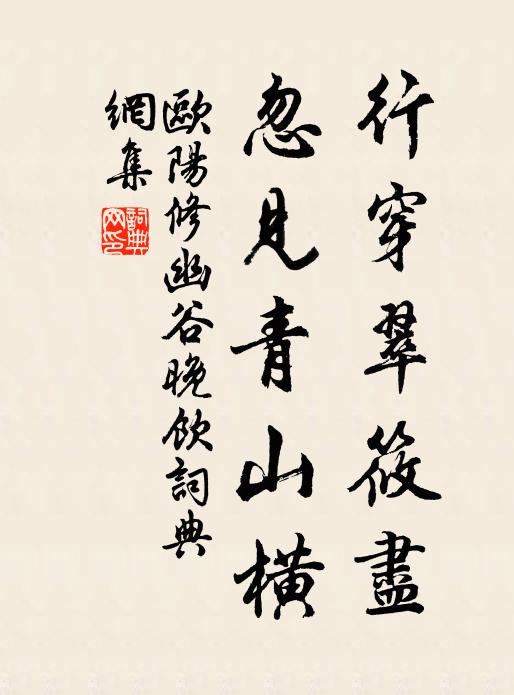 行穿翠筱盡
忽見青山橫
歐陽修幽谷晚飲詞典
網集
詞典網印